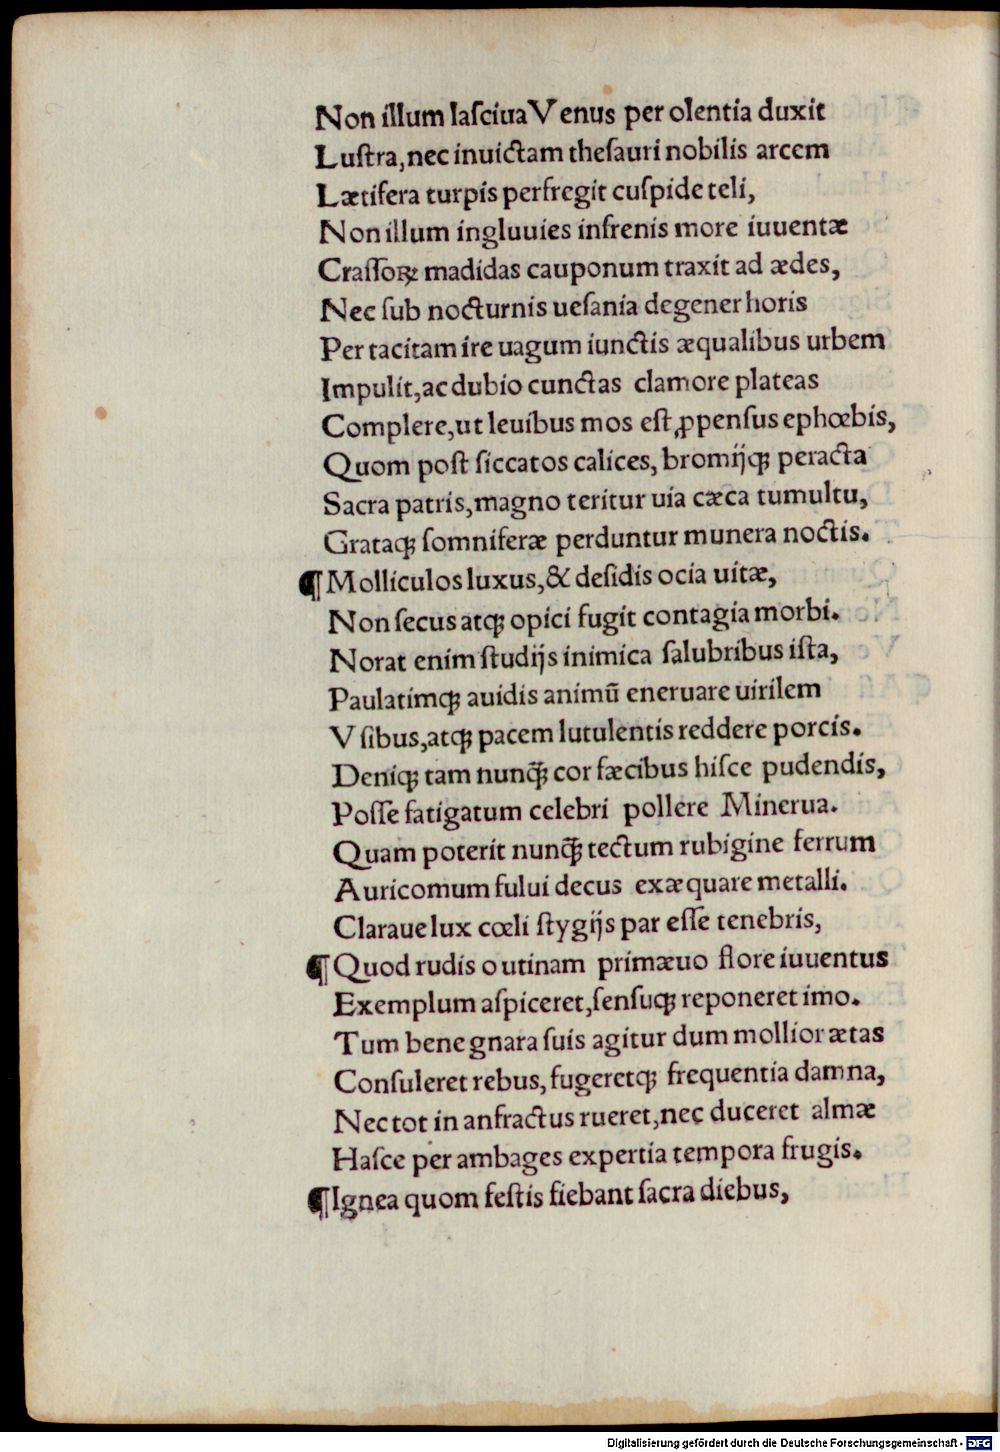 Non illum laſciua Venus per olentia duxit
Luſtra, nec inuictam theſauri nobilis arcem
Lætifera turpis perfregit cuſpide teli,
Non illum ingluuies infrenis more iuuentæ
Craſſoꝝ madidas cauponum traxit ad ædes,
Nec ſub nocturnis ueſania degener horis
Per tacitam ire uagum iunctis æqualibus urbem
Impulit, ac dubio cunctas clamore plateas
Complere, ut leuibus mos eſt ꝓpenſus ephœbis,
Quom poſt ſiccatos calices, bromijqꝫ peracta
Sacra patris, magno teritur uia cæca tumultu,
Grataqꝫ ſomniferæ perduntur munera noctis.
¶ Molliculos luxus, & deſidis ocia uitæ,
Non ſecus atqꝫ opici fugit contagia morbi.
Norat enim ſtudijs inimica ſalubribus iſta,
Paulatimqꝫ auidis animū eneruare uirilem
Vſibus, atqꝫ pacem lutulentis reddere porcis.
Deniqꝫ tam nunq̄ꝫ cor fæcibus hiſce pudendis,
Poſſe fatigatum celebri pollere Minerua.
Quam poterit nunq̄ꝫ tectum rubigine ferrum
Auricomum fului decus exæquare metalli.
Claraue lux cœli ſtygijs par eſſe tenebris,
¶ Quod rudis o utinam primæuo flore iuuentus
Exemplum aſpiceret, ſenſuqꝫ reponeret imo.
Tum bene gnara ſuis agitur dum mollior ætas
Conſuleret rebus, fugeretqꝫ frequentia damna,
Nec tot in anfractus rueret, nec duceret almæ
Haſce per ambages expertia tempora frugis.
¶ Ignea quom feſtis fiebant ſacra diebus,
Digitalisierung gefördert durch die Deutsche Forschungsgemeinschaft - DFG